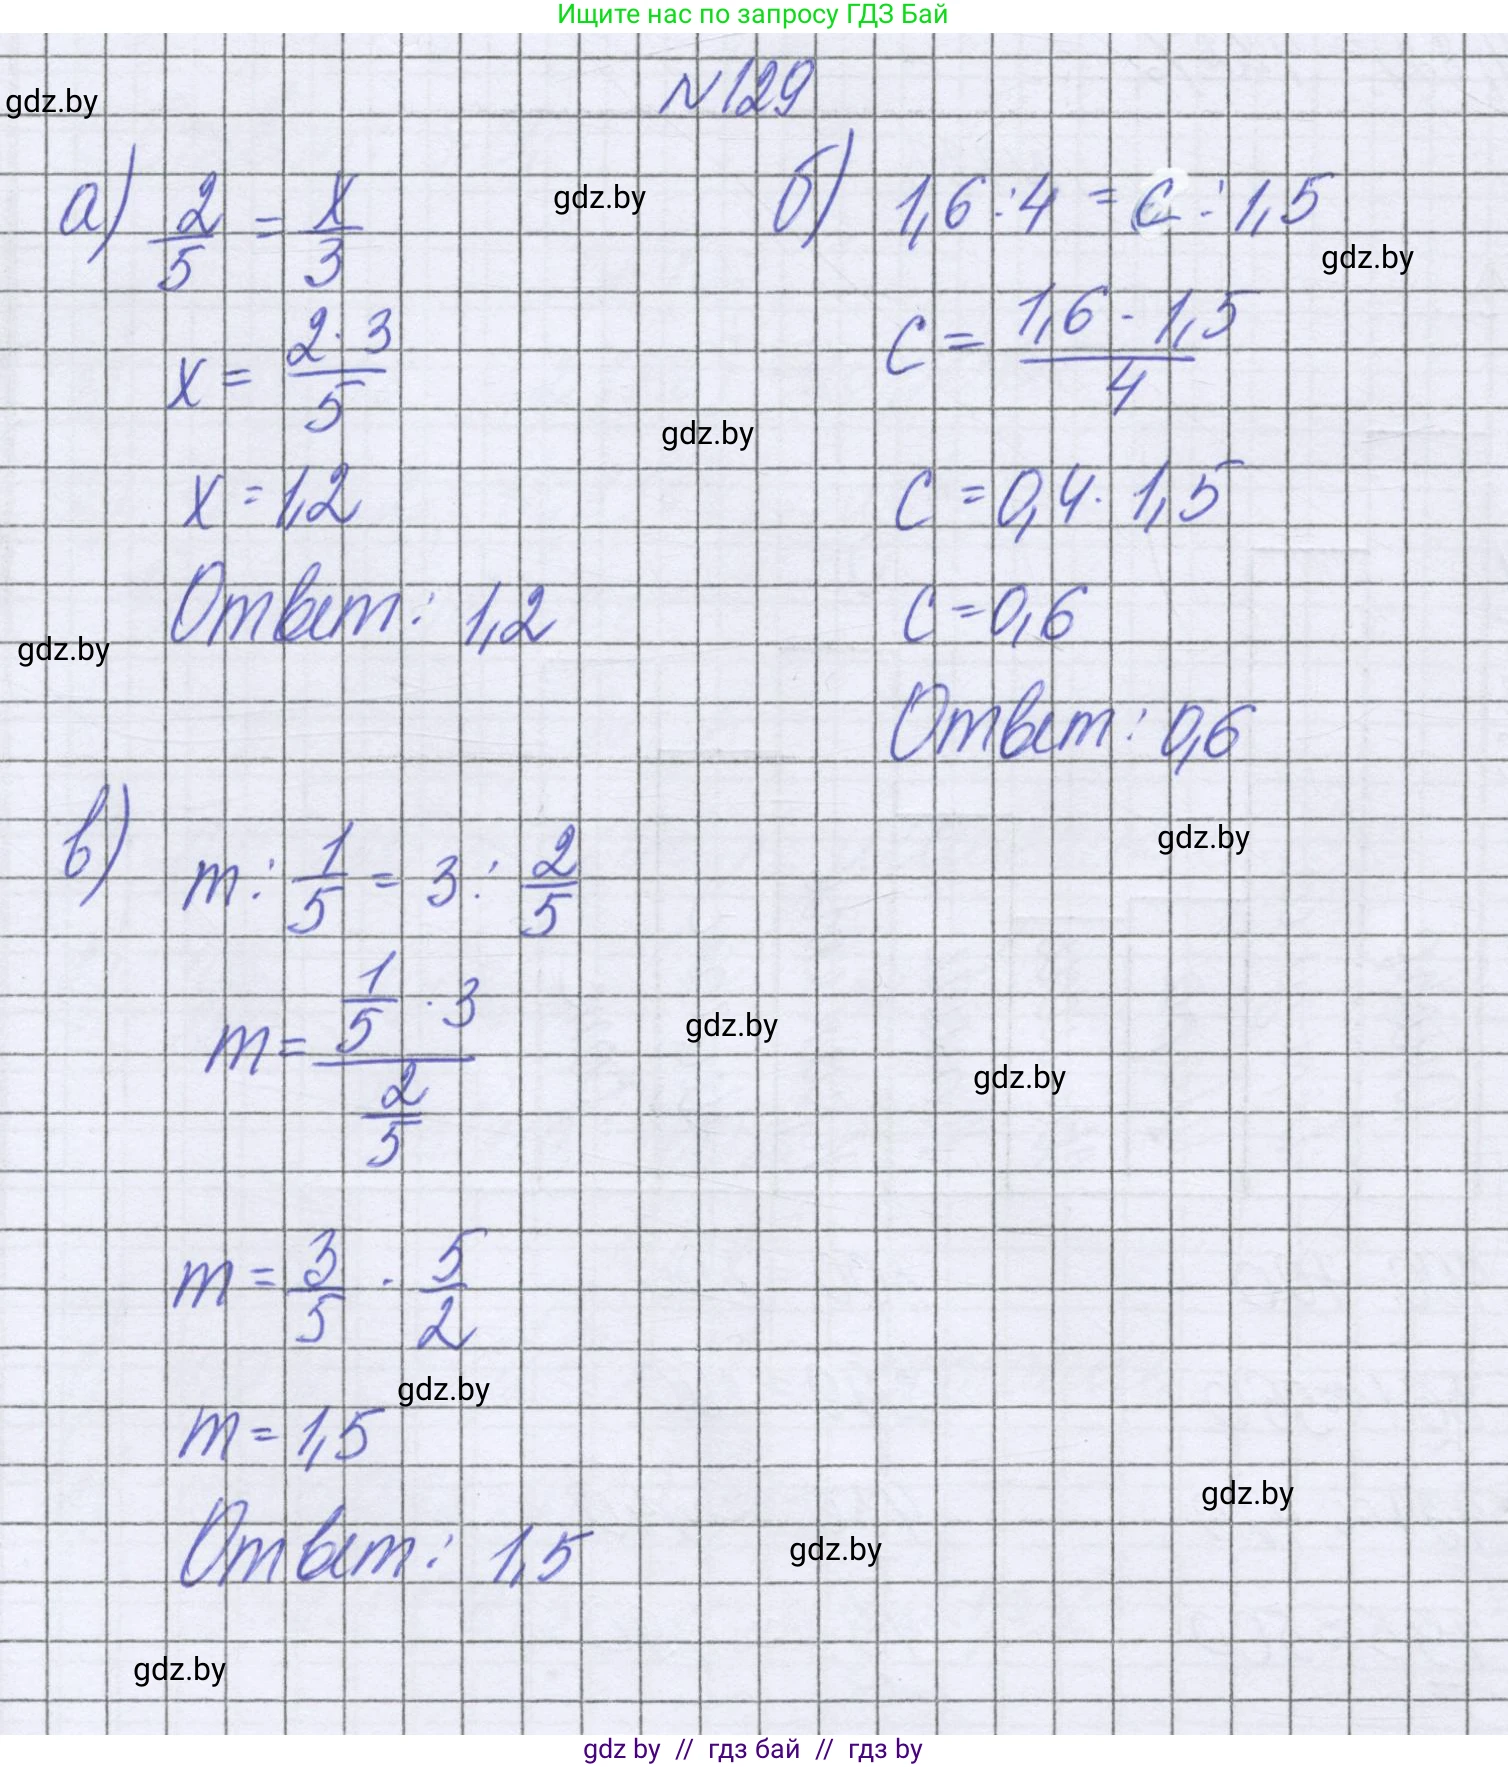 Ищите нас по запросу ГДЗ Бай
№129
gdz.by
а) 2/5 = x/3
gdz.by
x = (2·3)/5
x = 1,2
Ответ: 1,2
gdz.by
б) 1,6 : 4 = c : 1,5
gdz.by
c = (1,6 · 1,5)/4
gdz.by
c = 0,4 · 1,5
c = 0,6
Ответ: 0,6
gdz.by
в) m : 1/5 = 3 : 2/5
m = (1/5 · 3)/(2/5)
gdz.by
gdz.by
m = 3/5 · 5/2
gdz.by
m = 1,5
gdz.by
Ответ: 1,5
gdz.by
gdz.by
gdz by // гдз бай // гдз by